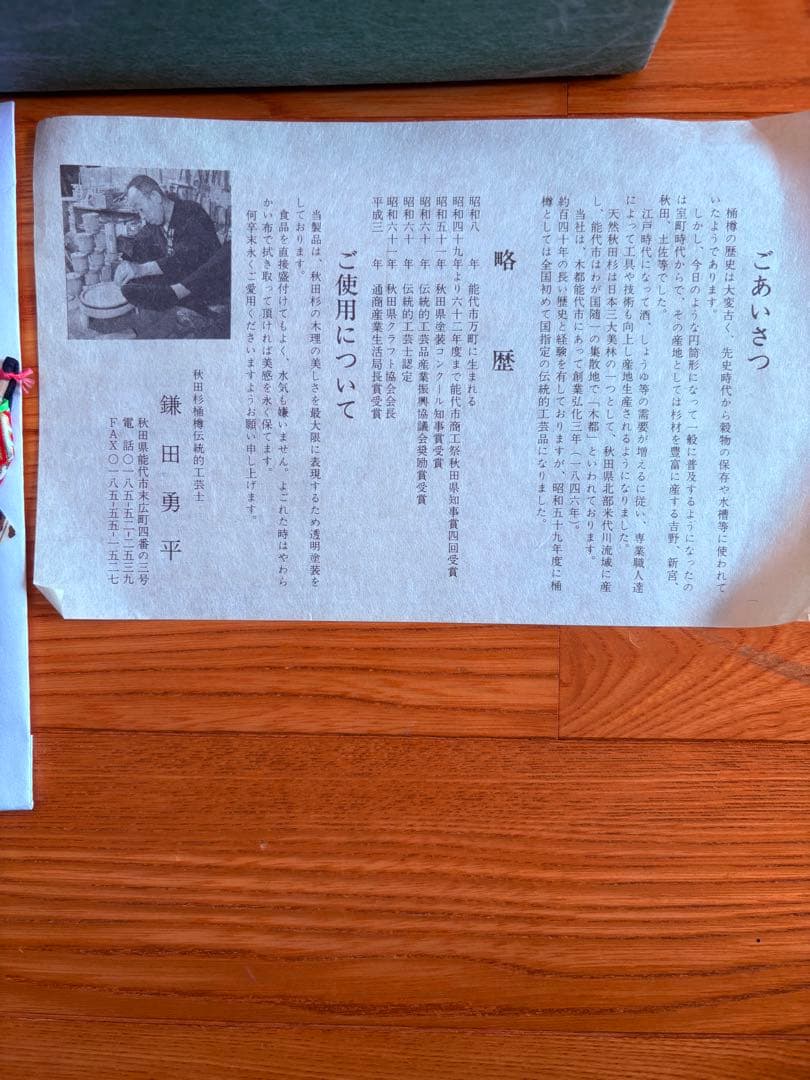 ごあいさつ
桶樽の歴史は大変古く、先史時代から穀物の保存や水槽等に使われて
いたようであります。
しかし、今日のような円筒形になって一般に普及するようになったの
は室町時代からで、その産地としては杉材を豊富に産する吉野、新宮、
秋田、土佐等でした。
江戸時代になって酒、しょうゆ等の需要が増えるに従い、専業職人達
によって工具や技術も向上し産地生産されるようになりました。
天然秋田杉は日本三大美林の一つとして、秋田県北部米代川流域に産
し、能代市はわが国随一の集散地で「木都」といわれております。
当社は、木都能代市にあって創業弘化三年(一八四六年)。
約百四十年の長い歴史と経験を有しておりますが、昭和五十九年度に桶
樽としては全国初めて国指定の伝統的工芸品になりました。
略歴
昭和八年 能代市万町に生まれる
昭和四十九年より六十二年度まで能代市商工祭秋田県知事賞四回受賞
昭和五十一年 秋田県塗装コンクール知事賞受賞
昭和六十年 伝統的工芸品産業振興協議会奨励賞受賞
昭和六十年 伝統的工芸士認定
昭和六十一年 秋田県クラフト協会会長
平成三年 通商産業生活局長賞受賞
ご使用について
当製品は、秋田杉の木理の美しさを最大限に表現するため透明塗装を
しております。
食品を直接盛付けてもよく、水気も嫌いません。よごれた時はやわら
かい布で拭き取って頂ければ美感を永く保てます。
何卒末永くご愛用くださいますようお願い申し上げます。
秋田杉桶樽伝統的工芸士
鎌田勇平
秋田県能代市末広町四番の三号
電話〇一八五-五二-二五三九
FAX〇一八五-五五-一五二七